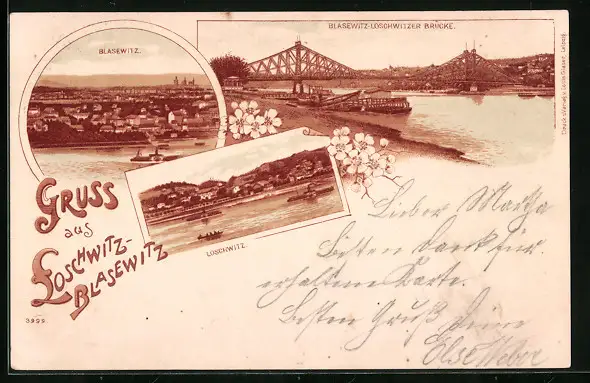 BLASEWITZ.
BLASEWITZ-LOSCHWITZER BRÜCKE.
LOSCHWITZ.
GRUSS
aus
LOSCHWITZ-
BLASEWITZ
3999.
Lieber
Besten Dank für
erhaltene Karte.
Besten Gruß Deine
Else Weber